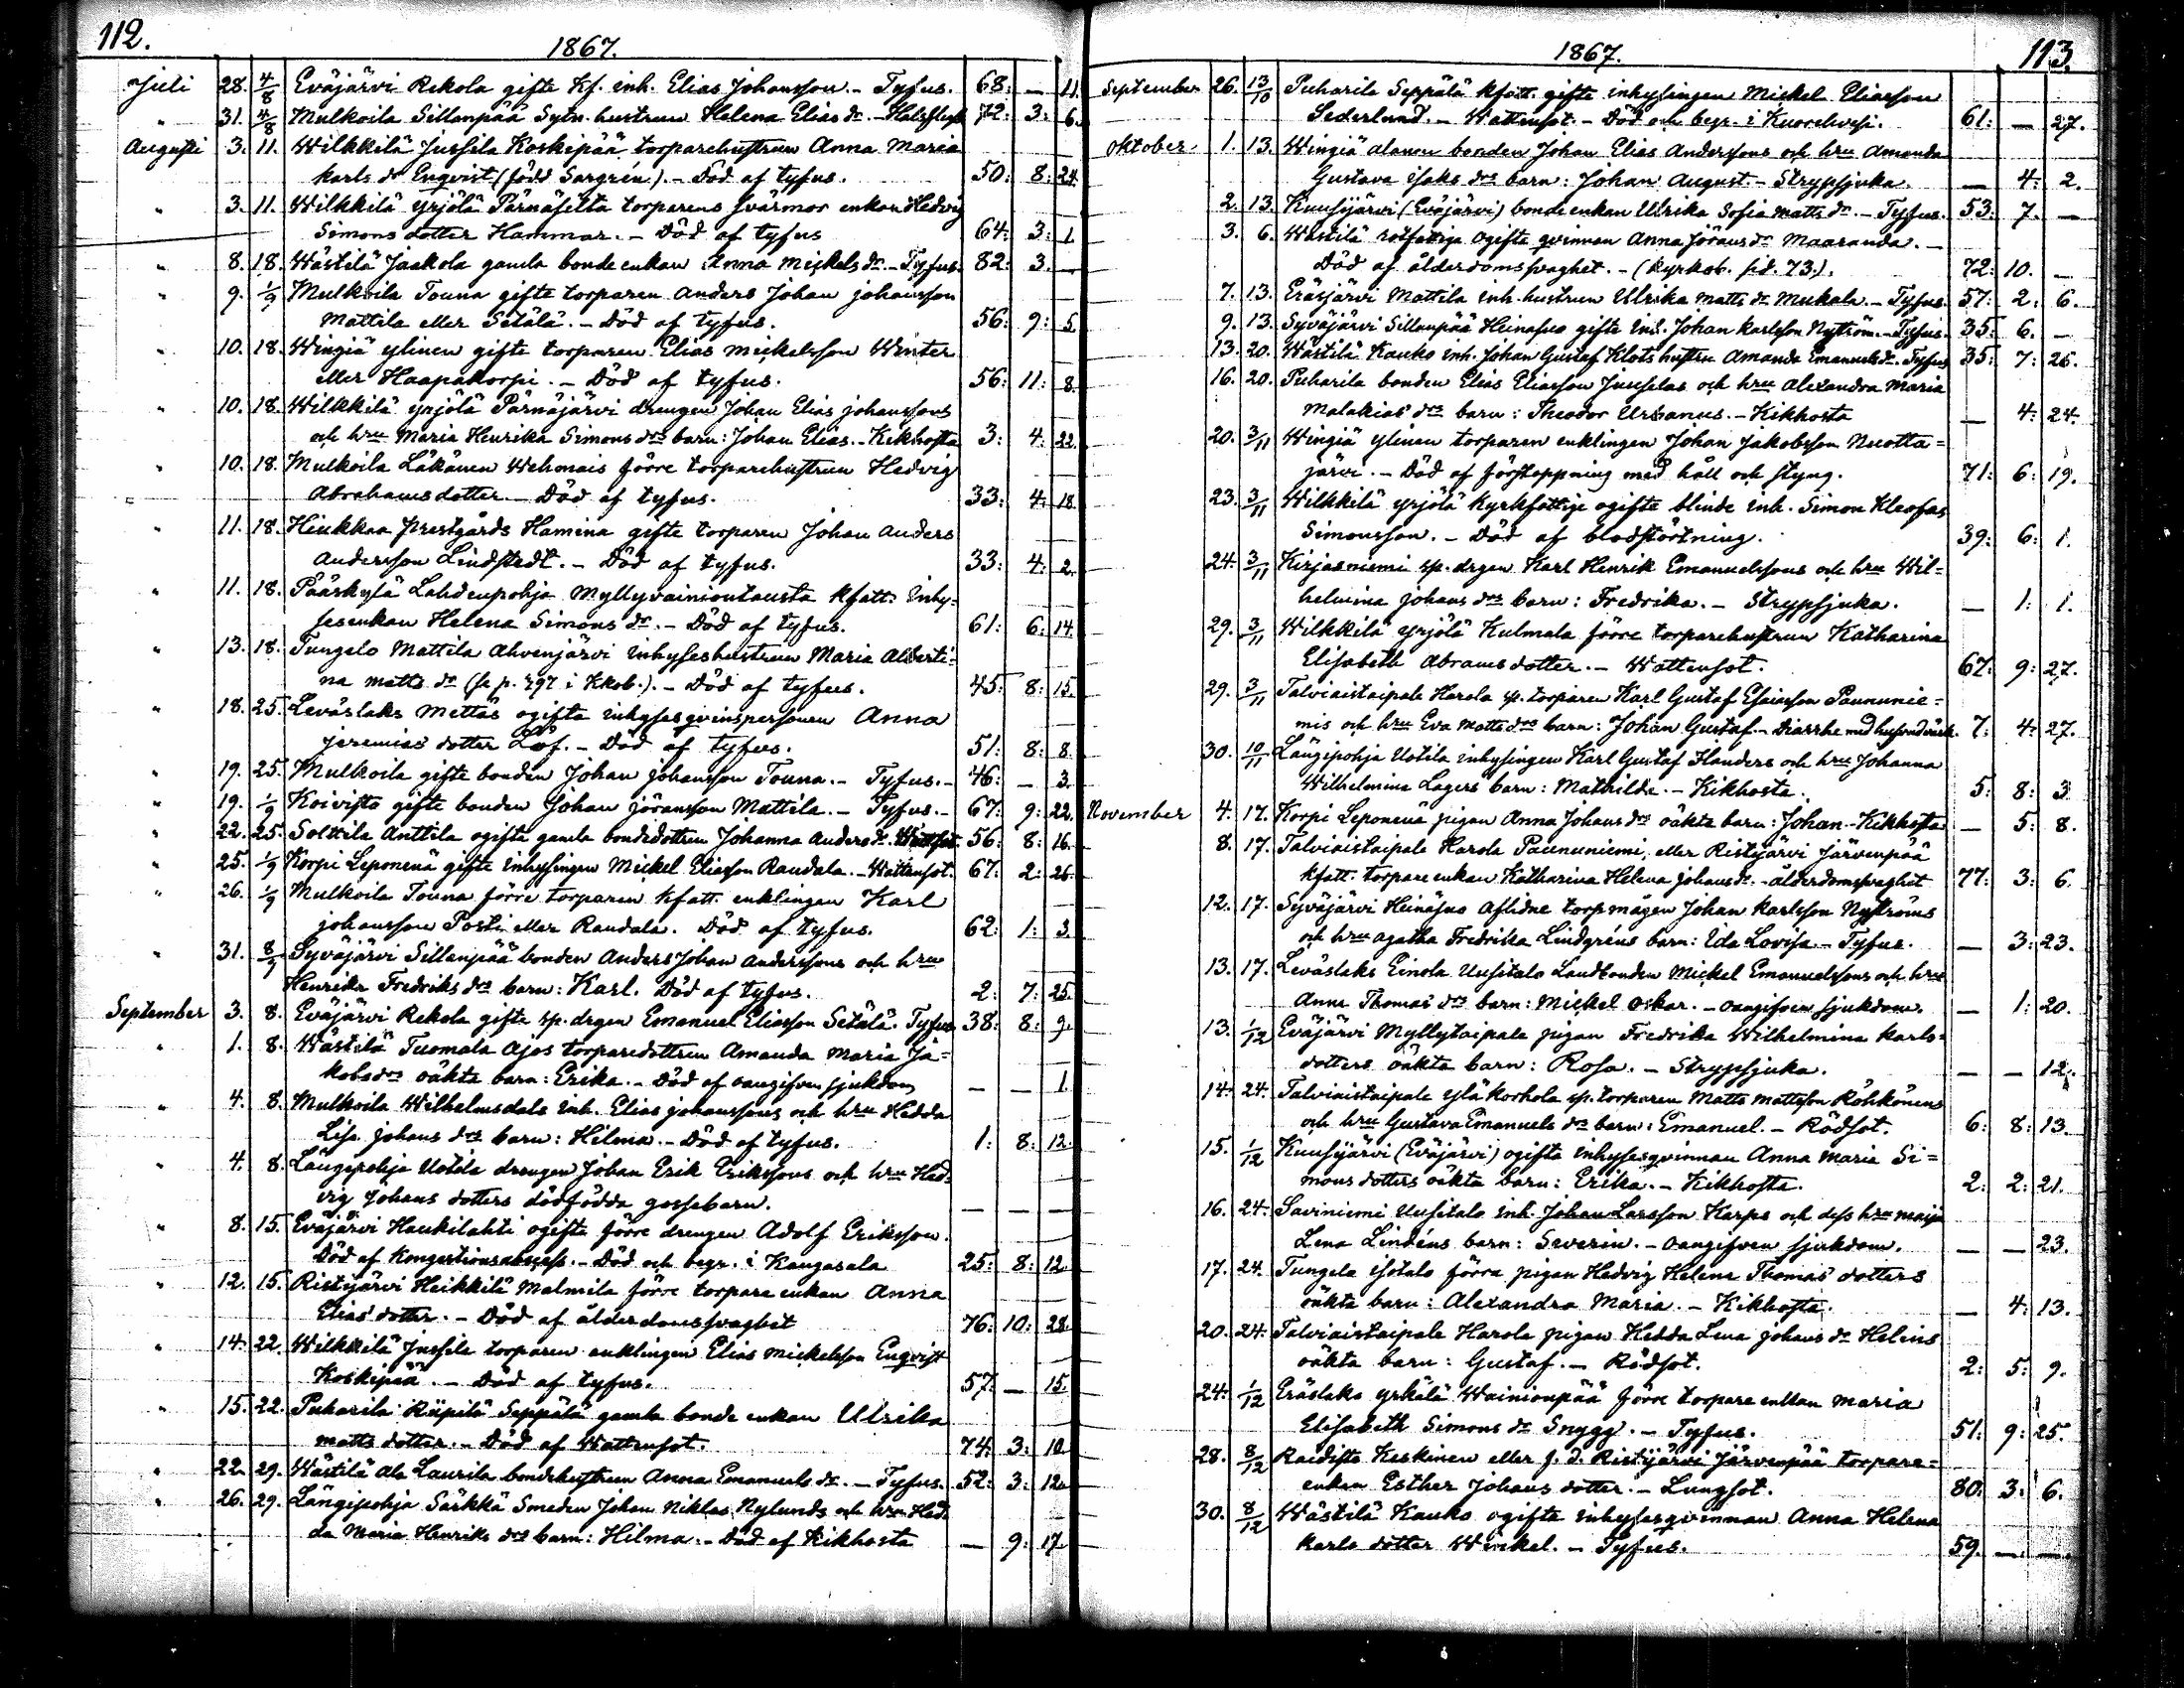 112.
1867.
Juli 28. 4/8 Eväjärvi Rekola gifte Kf. inh. Elias Johansson. - Tyfus. 68: — 11.
" 31. 4/8 Mulkoila Sillanpää Sytn. hustrun Helena Elias dr. - 72: 3: 6.
Augusti 3. 11. Wilkkilä Jussila Koskipää torparehustrun Anna Maria
Karls dr Enqvist (född Sargrén). - Död af tyfus. 50: 8: 24.
" 3. 11. Wilkkilä Yrjölä Pärnäsilta torparens svärmor enkan Hedvig
Simons dotter Hammar. - Död af tyfus 64: 3: 1.
" 8. 18. Wästilä Jaakola gamla bonde enkan Anna Mickels dr. - Tyfus. 82: 3. —
" 9. 1/9 Mulkoila Touna gifte torparen Anders Johan Johansson
Mattila eller Setälä. - Död af tyfus. 56: 9: 5.
" 10. 18. Wingiä ylinen gifte torparen Elias Mickelsson Winter
eller Haapakorpi. - Död af tyfus. 56: 11: 8.
" 10. 18. Wilkkilä Yrjölä Pärnäjärvi drengen Johan Elias Johanssons
och hru Maria Henrika Simons drs barn: Johan Elias. - Kikhosta 3: 4: 22.
" 10. 18. Mulkoila Läkänen Wehmais förre torparehustrun Hedvig
Abrahams dotter. - Död af tyfus. 33: 4: 18.
" 11. 18. Hiukkaa prestgårds Hamina gifte torparen Johan Anders
Andersson Lindstedt. - Död af tyfus. 33: 4: 2.
" 11. 18. Pääskylä Lahdenpohja Myllyvainiontausta kfatt. Inhy-
sesenkan Helena Simons dr. - Död af tyfus. 61: 6: 14.
" 13. 18. Tungelo Mattila Ahvenjärvi Inhyseshustrun Maria Alberti-
na Matts dr (se p. 297 i Kkob.). - Död af tyfus. 45: 8: 15.
" 18. 25. Leväslaks Mettäs ogifta inhyses qvinspersonen Anna
Jeremias dotter Löf. - Död af tyfus. 51: 8: 8.
" 19. 25. Mulkoila gifte bonden Johan Johansson Touna. - Tyfus. - 46: — 3.
" 19. 1/9 Koivisto gifte bonden Johan Jöransson Mattila. - Tyfus. - 67: 9: 22.
" 22. 25. Solttila Anttila ogifta gamla bondedottren Johanna Anders dr. Wattusot. 56: 8: 16.
" 25. 1/9 Korpi Leponenä gifte Inhysingen Mickel Eliasson Randala. - Wattusot. 67: 2: 26.
" 26. 1/9 Mulkoila Touna förre torparen kfatt. enklingen Karl
Johansson Posti eller Randala. Död af tyfus. 62: 1: 3.
" 31. 8/9 Syväjärvi Sillanpää bonden Anders Johan Anderssons och hru
Henrika Fredriks drs barn: Karl. Död af tyfus. 2: 7: 25.
September 3. 8. Eväjärvi Rekola gifte sp. drgen Emanuel Eliasson Setälä. Tyfus 38: 8: 9.
" 1. 8. Wästilä Tuomala Ajos torparedottren Amanda Maria Ja-
kobs drs oäkta barn: Erika. - Död af oangifven sjukdom — — 1.
" 4. 8. Mulkoila Wilhelmsdals inh. Elias Johanssons och hru Hedda
Lisa Johans drs barn: Hilma. - Död af tyfus. 1: 8: 12.
" 4. 8. Längipohja Uotila drengen Johan Erik Erikssons och hru Hed-
vig Johans dotters dödfödda gossebarn. — — —
" 8. 15. Eväjärvi Haukilahti ogifte förre drengen Adolf Eriksson.
Död af Kongestionsabscess. - Död och begr. i Kangasala 25: 8: 12.
" 12. 15. Ristijärvi Heikkilä Malmila förre torpare enkan Anna
Elias dotter. - Död af ålderdomssvaghet 76: 10: 28.
" 14. 22. Wilkkilä Jussila torparen enklingen Elias Mickelsson Enqvist
Koskipää. - Död af tyfus. 57: — 15.
" 15. 22. Puharila Riipilä Seppälä gamla bonde enkan Ulrika
Matts dotter. - Död af Wattusot. 74: 3: 10.
" 22. 29. Wästilä Ala Laurila bondehustrun Anna Emanuels dr. - Tyfus. 52: 3: 12.
" 26. 29. Längipohja Särkkä Smeden Johan Niklas Nylunds och hru Hed-
da Maria Henriks drs barn: Hilma. - Död af Kikhosta — 9: 17.
1867.
113.
September 26. 13/10 Puharila Seppälä kfatt. gifte inhysingen Mickel Eliasson
Sederlund. - Wattusot. - Död och begr. i Kuorehvesi. 61: — 27.
Oktober 1. 13. Wingiä alanen bonden Johan Elias Anderssons och hru Amanda
Gustava Isaks drs barn: Johan August. - Strypsjuka. — 4: 2.
2. 13. Kuusijärvi (Eväjärvi) bonde enkan Ulrika Sofia Matts dr. - Tyfus. 53: 7. —
3. 6. Wästilä rotfattiga ogifta qvinnan Anna Jörans dr Maaranda. -
Död af ålderdomssvaghet. - (Kyrkob. sid. 73.). 72: 10. —
7. 13. Eräsjärvi Mattila inh. hustrun Ulrika Matts dr Mukala. - Tyfus. 57: 2: 6.
9. 13. Syväjärvi Sillanpää Heinäsuo gifte Inh. Johan Karlsson Nyström. - Tyfus. 35: 6. —
13. 20. Wästilä Kauko inh. Johan Gustaf Klots hustru Amanda Emanuels dr. Tyfus 35: 7: 26.
16. 20. Puharila bonden Elias Eliasson Juuselas och hru Alexandra Maria
Malakias drs barn: Theodor Urbanus. - Kikhosta — 4: 24.
20. 3/11 Wingiä ylinen torparen enklingen Johan Jakobsson Nuotta=
järvi. - Död af förstoppning med håll och styng. 71: 6: 19.
23. 3/11 Wilkkilä Yrjölä Kyrkfattige ogifte blinde inh. Simon Kleofas
Simonsson. - Död af blodstörtning. 39: 6: 1.
24. 3/11 Kirjasniemi sp. drgen Karl Henrik Emanuelssons och hru Wil-
helmina Johans drs barn: Fredrika. - Strypsjuka. — 1: 1.
29. 3/11 Wilkkilä Yrjölä Kulmala förre torparehustrun Katharina
Elisabeth Abrams dotter. - Wattusot. 67: 9: 27.
29. 3/11 Talviaistaipale Harola sp. torparen Karl Gustaf Esaiasson Paununie=
mis och hru Eva Matts drs barn: Johan Gustaf. - Diarrhe med hufvudvärk. 7: 4: 27.
30. 10/11 Längipohja Uotila inhysingen Karl Gustaf Flanders och hru Johanna
Wilhelmina Lagers barn: Mathilda. - Kikhosta. 5: 8: 3
November 4. 17. Korpi Leponenä pigan Anna Johans drs oäkta barn: Johan. - Kikhosta — 5: 8.
8. 17. Talviaistaipale Harola Paununiemi, eller Ristijärvi Järvenpää
kfatt. torpare enkan Katharina Helena Johans dr. - ålderdomssvaghet 77: 3: 6.
12. 17. Syväjärvi Heinäsuo aflidne torpmågen Johan Karlsson Nyströms
och hru Agatha Fredrika Lindgréns barn: Ida Lovisa. - Tyfus. — 3: 23.
13. 17. Leväslaks Einola Uusitalo Landbonden Mickel Emanuelssons och hru
Anna Thomas drs barn: Mickel Oskar. - oangifven sjukdom. — 1: 20.
13. 1/12 Eväjärvi Myllytaipale pigan Fredrika Wilhelmina Karls-
dotters oäkta barn: Rosa. - Strypsjuka. — — 12.
14. 24. Talviaistaipale Ylä Korhola sp. torparen Matts Mattsson Röhkönens
och hru Gustava Emanuels drs barn: Emanuel. - Rödsot. 6: 8: 13.
15. 1/12 Kuusijärvi (Eväjärvi) ogifta inhysesqvinnan Anna Maria Si=
mons dotters oäkta barn: Erika. - Kikhosta. 2: 2: 21.
16. 24. Saviniemi Uusitalo Inh. Johan Larsson Karps och dess hru Maija
Lena Lindéns barn: Severin. - oangifven sjukdom. — — 23.
17. 24. Tungela Isotalo förra pigan Hedvig Helena Thomas dotters
oäkta barn: Alexandra Maria. - Kikhosta. — 4: 13.
20. 24. Talviaistaipale Harola pigan Hedda Lena Johans dr Helins
oäkta barn: Gustaf. - Rödsot. 2: 5: 9.
24. 1/12 Eräslaks Yrkälä Wainionpää förre torpare enkan Maria
Elisabeth Simons dr Snygg. - Tyfus. 51: 9: 25.
28. 8/12 Raidisto Keskinen eller f. d. Ristijärvi Järvenpää torpare=
enkan Esther Johans dotter. - Lungsot. 80: 3: 6.
30. 8/12 Wästilä Kauko ogifta inhysesqvinnan Anna Helena
Karls dotter Winkel. - Tyfus. 59. — —